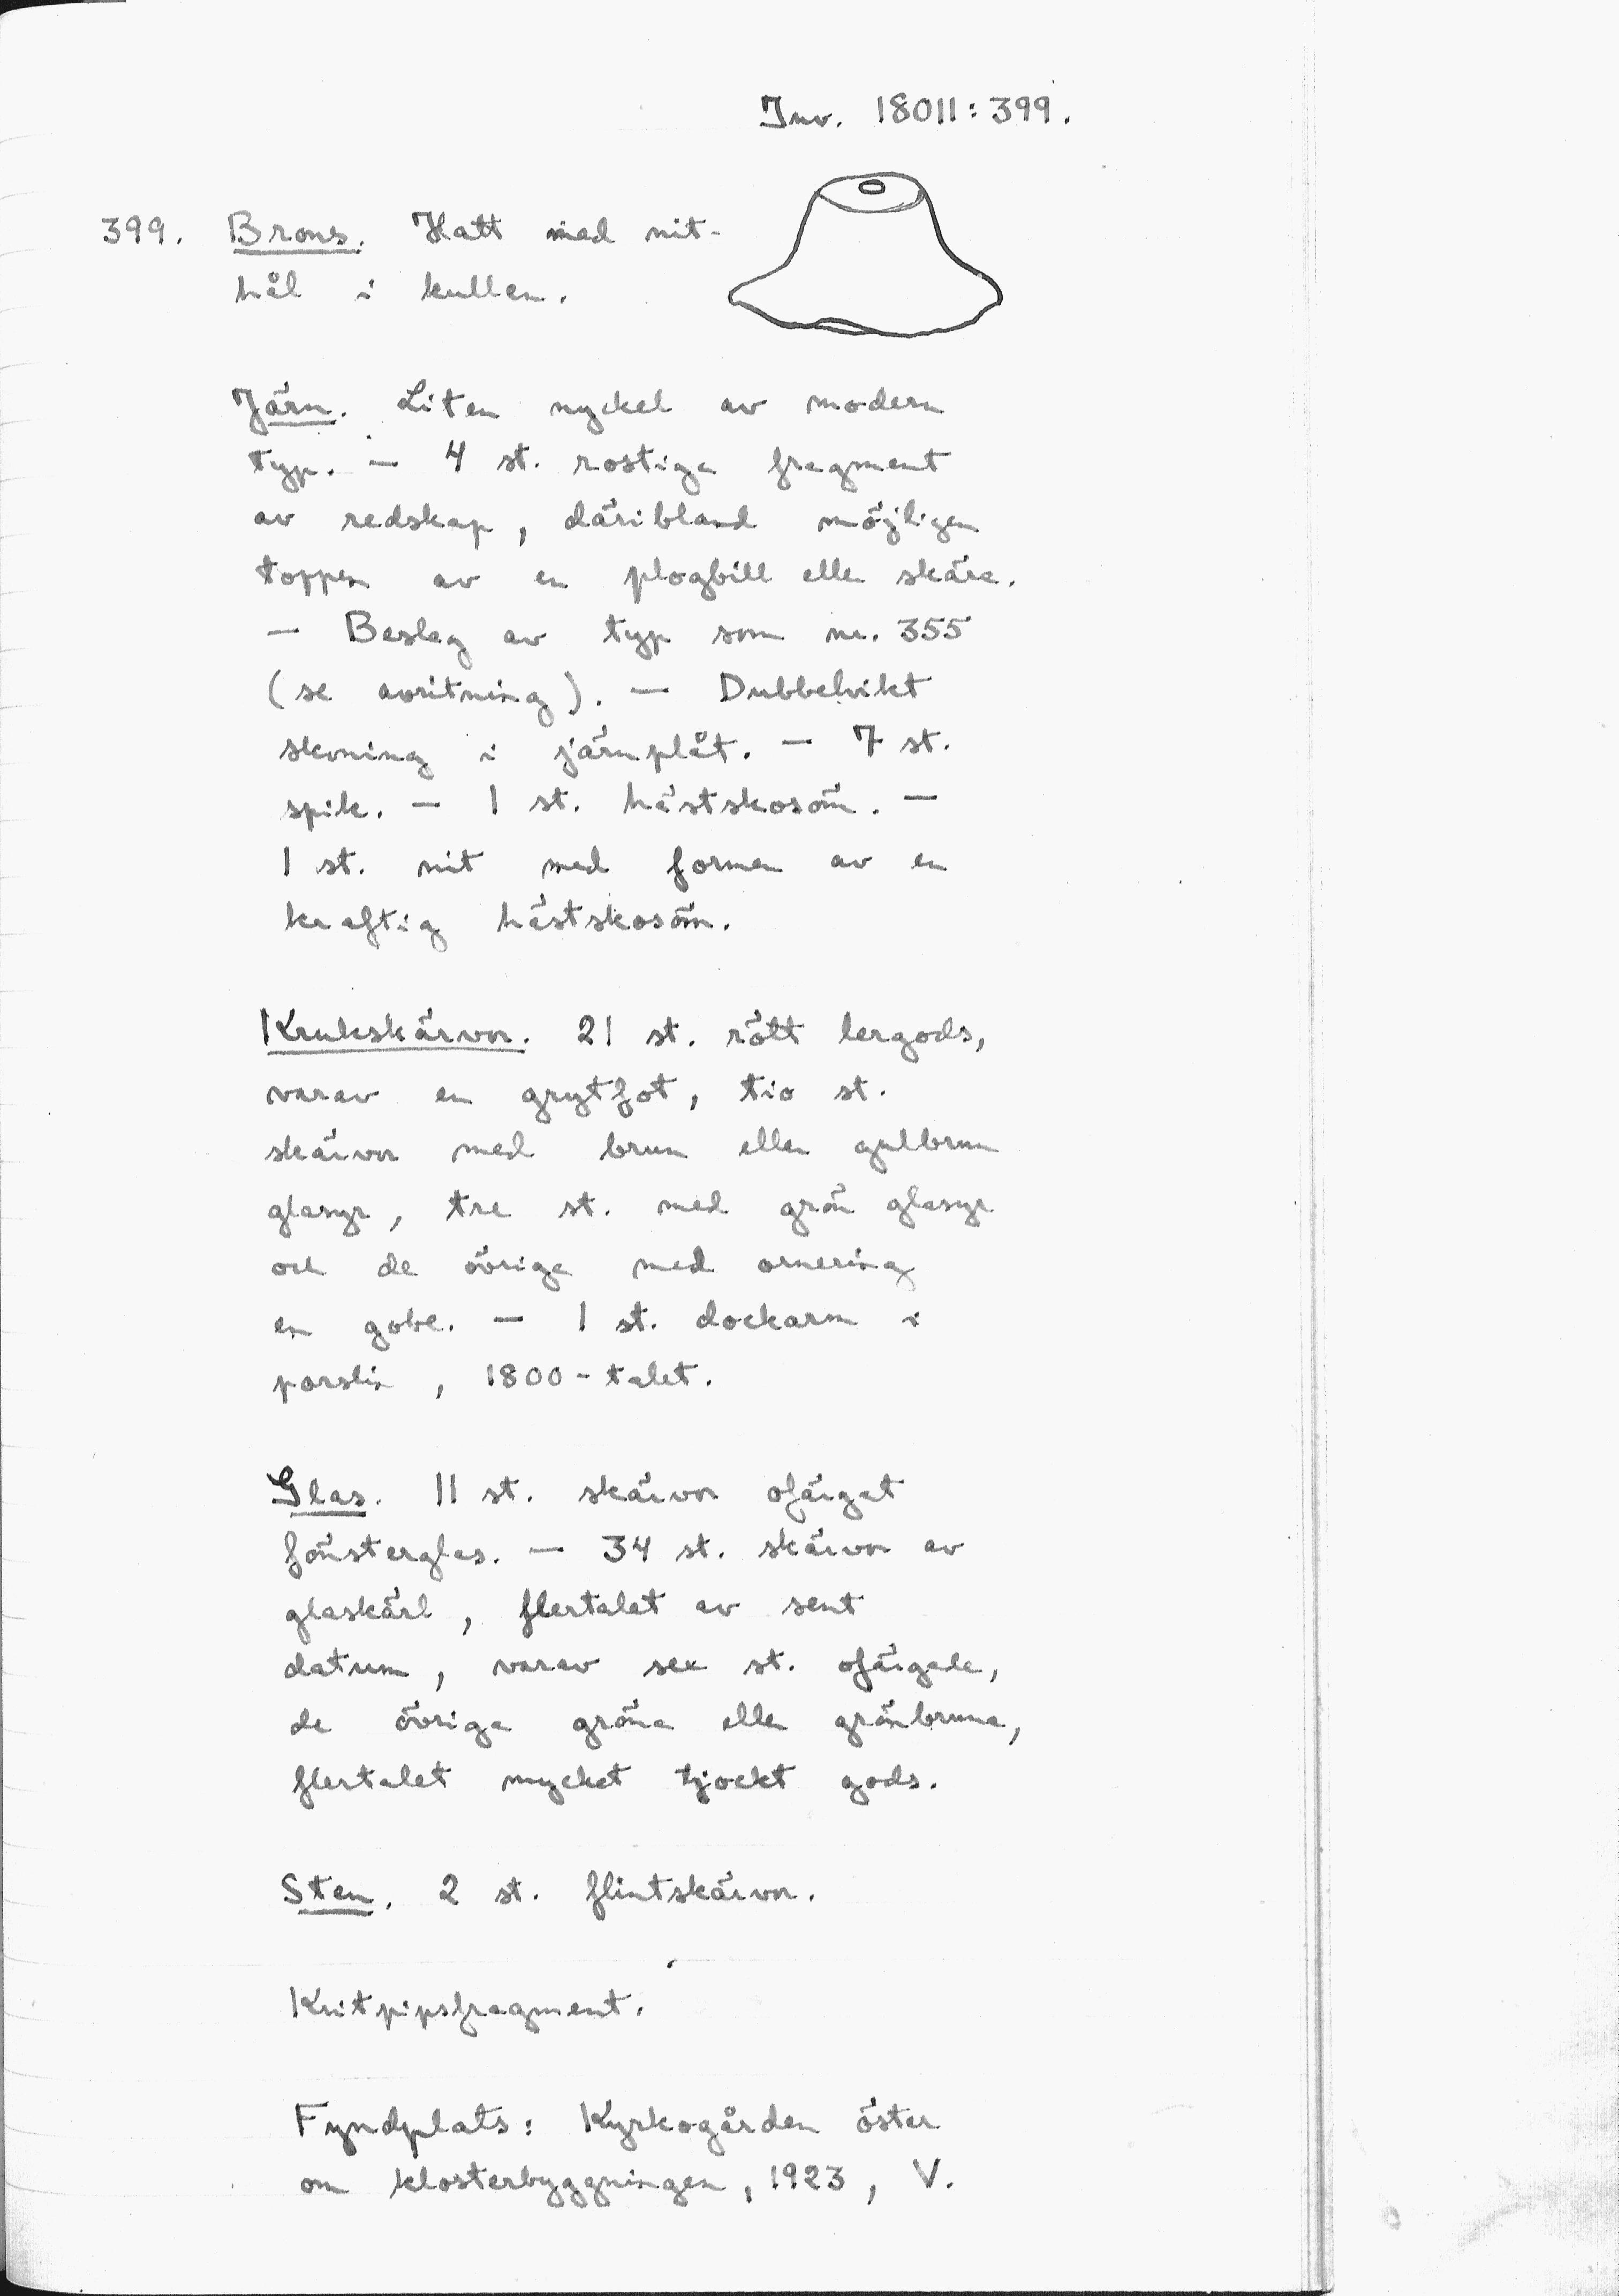 Inv. 18011:399.
399. Brons. Hatt med nit-
hål i kullen.
Järn. Liten nyckel av modern
typ. — 4 st. rostiga fragment
av redskap, däribland möjligen
toppen av en plogbill eller skära.
— Beslag av typ som nr. 355
(se avritning). — Dubbelvikt
skoning i järnplåt. — 7 st.
spik. — 1 st. hästskosöm. —
1 st. nit med formen av en
kraftig hästskosöm.
Krukskärvor. 21 st. rött lergods,
varav en grytfot, tio st.
skärvor med brun eller gulbrun
glasyr, tre st. med grön glasyr
och de övriga med ornering
en gobe. — 1 st. dockarm i
porslin, 1800-talet.
Glas. 11 st. skärvor ofärgat
fönsterglas. — 34 st. skärvor av
glaskärl, flertalet av sent
datum, varav sex st. ofärgade,
de övriga gröna eller grönbruna,
flertalet mycket tjockt gods.
Sten. 2 st. flintskärvor.
Kritpipsfragment.
Fyndplats: Kyrkogården öster
om klosterbyggningen, 1923, V.